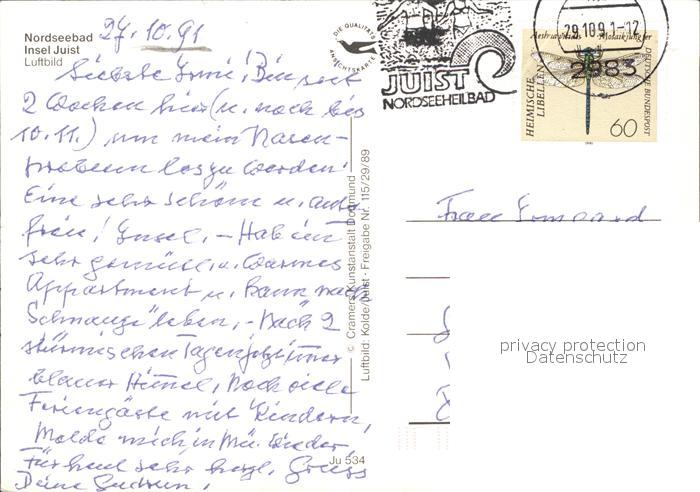 Nordseebad
Insel Juist
Luftbild
27.10.91
Liebste Irmi! Bin seit
2 Wochen hier (u. noch bis
10.11.) um mein Nasen-
problem loszuwerden.
Eine sehr schöne u. auto-
freie! Insel. – Hab ein
sehr gemütl. u. warmes
Appartment u. kann nach
Schnauze leben. – Nach 2
stürmischen Tagen jetzt nur
blauer Himel, Noch viele
Feriengäste mit Kindern,
Melde mich in Mü. wieder,
Für heut sehr herzl. Grüss
Deine Gudrun,
DIE QUALITÄTS
ANSICHTSKARTE
© Cramers Kunstanstalt Dortmund
Luftbild: Kolde/Juist · Freigabe Nr. 115/29/89
Ju 534
JUIST
NORDSEEHEILBAD
29.10.91-12
2983
Mosaikjungfer
HEIMISCHE
LIBELLEN
DEUTSCHE BUNDESPOST
60
Frau Irmgard
privacy protection
Datenschutz